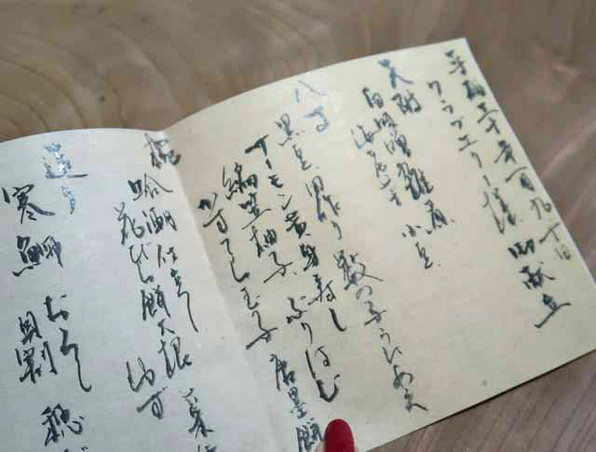 平成三十年一月九十日
クラブエリー様 御献立
先附
白味噌雑煮 小豆
海老芋
八寸
黒豆 田作り 数の子うにあえ
サーモン黄身寿し ぶりはむ
編笠柚子 唐墨餅
椀
吟醸仕立て
花びら餅大根
ゆず
造り
寒鰤 おろし
貝割